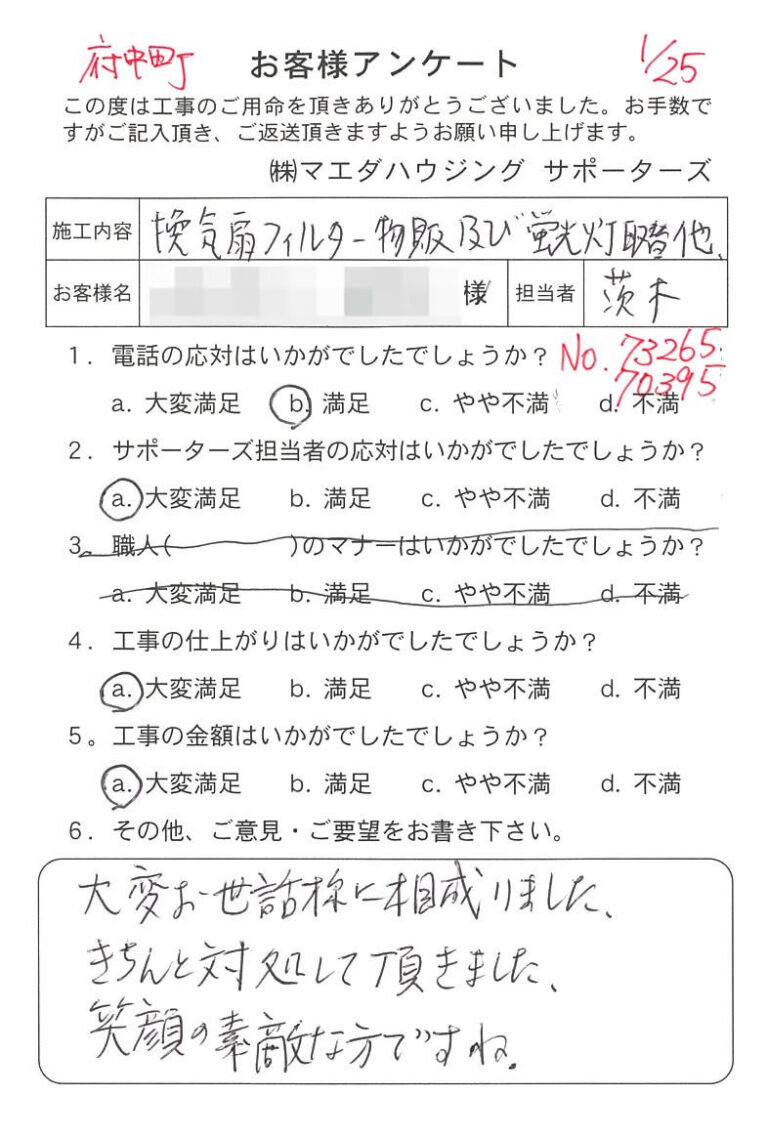 府中町 お客様アンケート 1/25
この度は工事のご用命を頂きありがとうございました。お手数で
すがご記入頂き、ご返送頂きますようお願い申し上げます。
㈱マエダハウジング サポーターズ
施工内容 換気扇フィルター物販及び蛍光灯取替他、
お客様名 様 担当者 茨木
1. 電話の応対はいかがでしたでしょうか? No. 73265
70395
a. 大変満足 b. 満足 c. やや不満 d. 不満
2. サポーターズ担当者の応対はいかがでしたでしょうか?
a. 大変満足 b. 満足 c. やや不満 d. 不満
3。職人( )のマナーはいかがでしたでしょうか?
a. 大変満足 b. 満足 c. やや不満 d. 不満
4. 工事の仕上がりはいかがでしたでしょうか?
a. 大変満足 b. 満足 c. やや不満 d. 不満
5。工事の金額はいかがでしたでしょうか?
a. 大変満足 b. 満足 c. やや不満 d. 不満
6. その他、ご意見・ご要望をお書き下さい。
大変お世話様に相成りました、
きちんと対処して頂きました、
笑顔の素敵な方ですね。